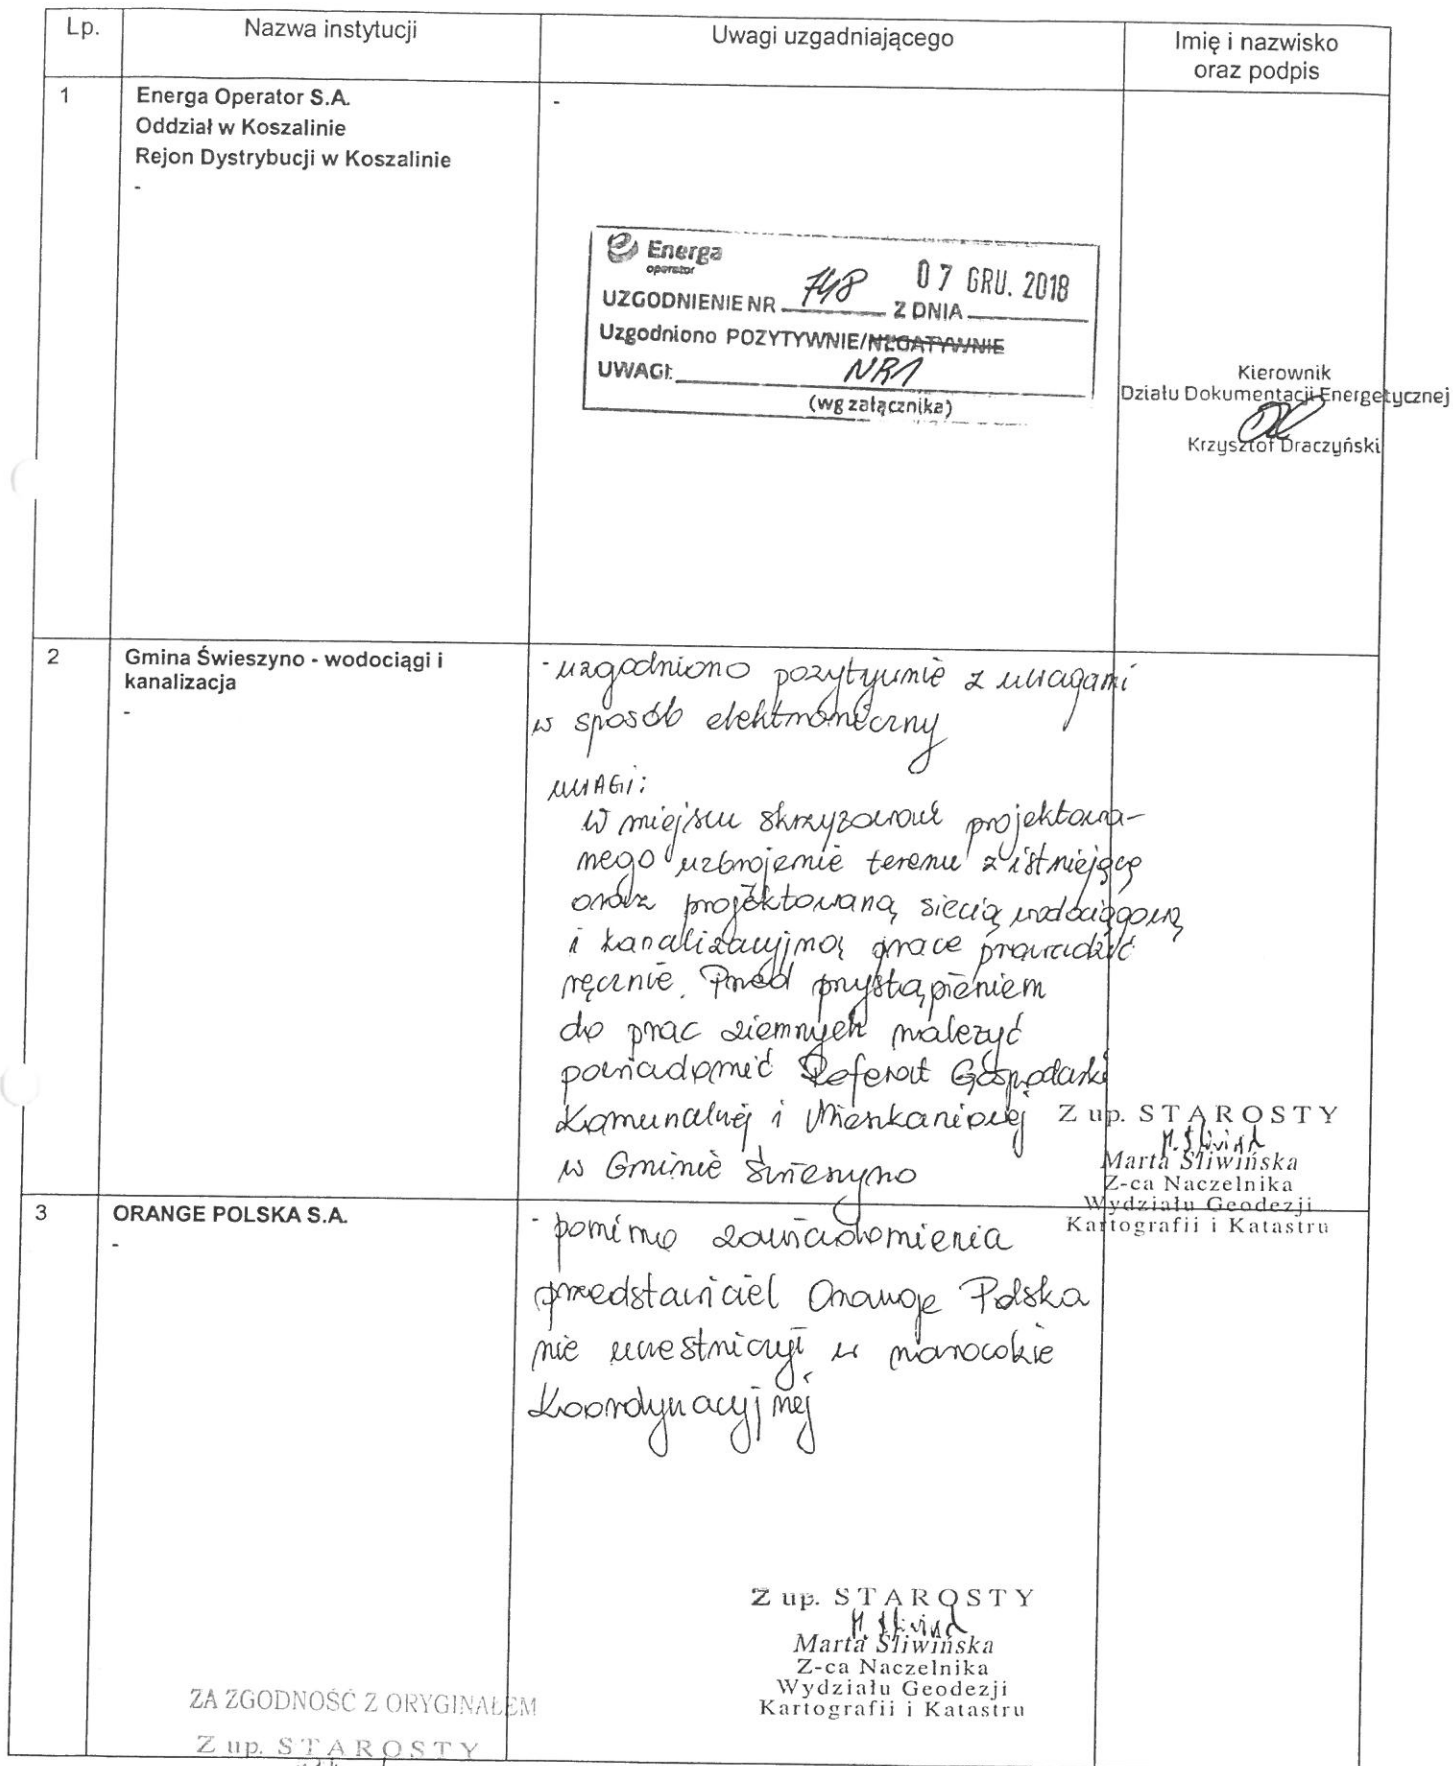 Lp.
Nazwa instytucji
Uwagi uzgadniającego
Imię i nazwisko
oraz podpis
1
Energa Operator S.A.
Oddział w Koszalinie
Rejon Dystrybucji w Koszalinie
-
-
Energa
operator
UZGODNIENIE NR 748 Z DNIA 07 GRU. 2018
Uzgodniono POZYTYWNIE/NEGATYWNIE
UWAGI: NR1
(wg załącznika)
Kierownik
Działu Dokumentacji Energetycznej
Krzysztof Draczyński
2
Gmina Świeszyno - wodociągi i
kanalizacja
-
- uzgodniono pozytywnie z uwagami
w sposób elektroniczny
UWAGI:
W miejscu skrzyżowań projektowa-
nego uzbrojenie terenu z istniejącą
oraz projektowaną siecią wodociągową
i kanalizacyjną prace prowadzić
ręcznie. Przed przystąpieniem
do prac ziemnych należyć
powiadomić Referat Gospodarki
Komunalnej i Mieszkaniowej
w Gminie Świeszyno
Z up. STAROSTY
M. Śliwińs
Marta Śliwińska
Z-ca Naczelnika
Wydziału Geodezji
Kartografii i Katastru
3
ORANGE POLSKA S.A.
-
- pomimo zawiadomienia
przedstawiciel Orange Polska
nie uczestniczył w naradzie
Koordynacyjnej
Z up. STAROSTY
M. Śliwińs
Marta Śliwińska
Z-ca Naczelnika
Wydziału Geodezji
Kartografii i Katastru
ZA ZGODNOŚĆ Z ORYGINAŁEM
Z up. STAROSTY